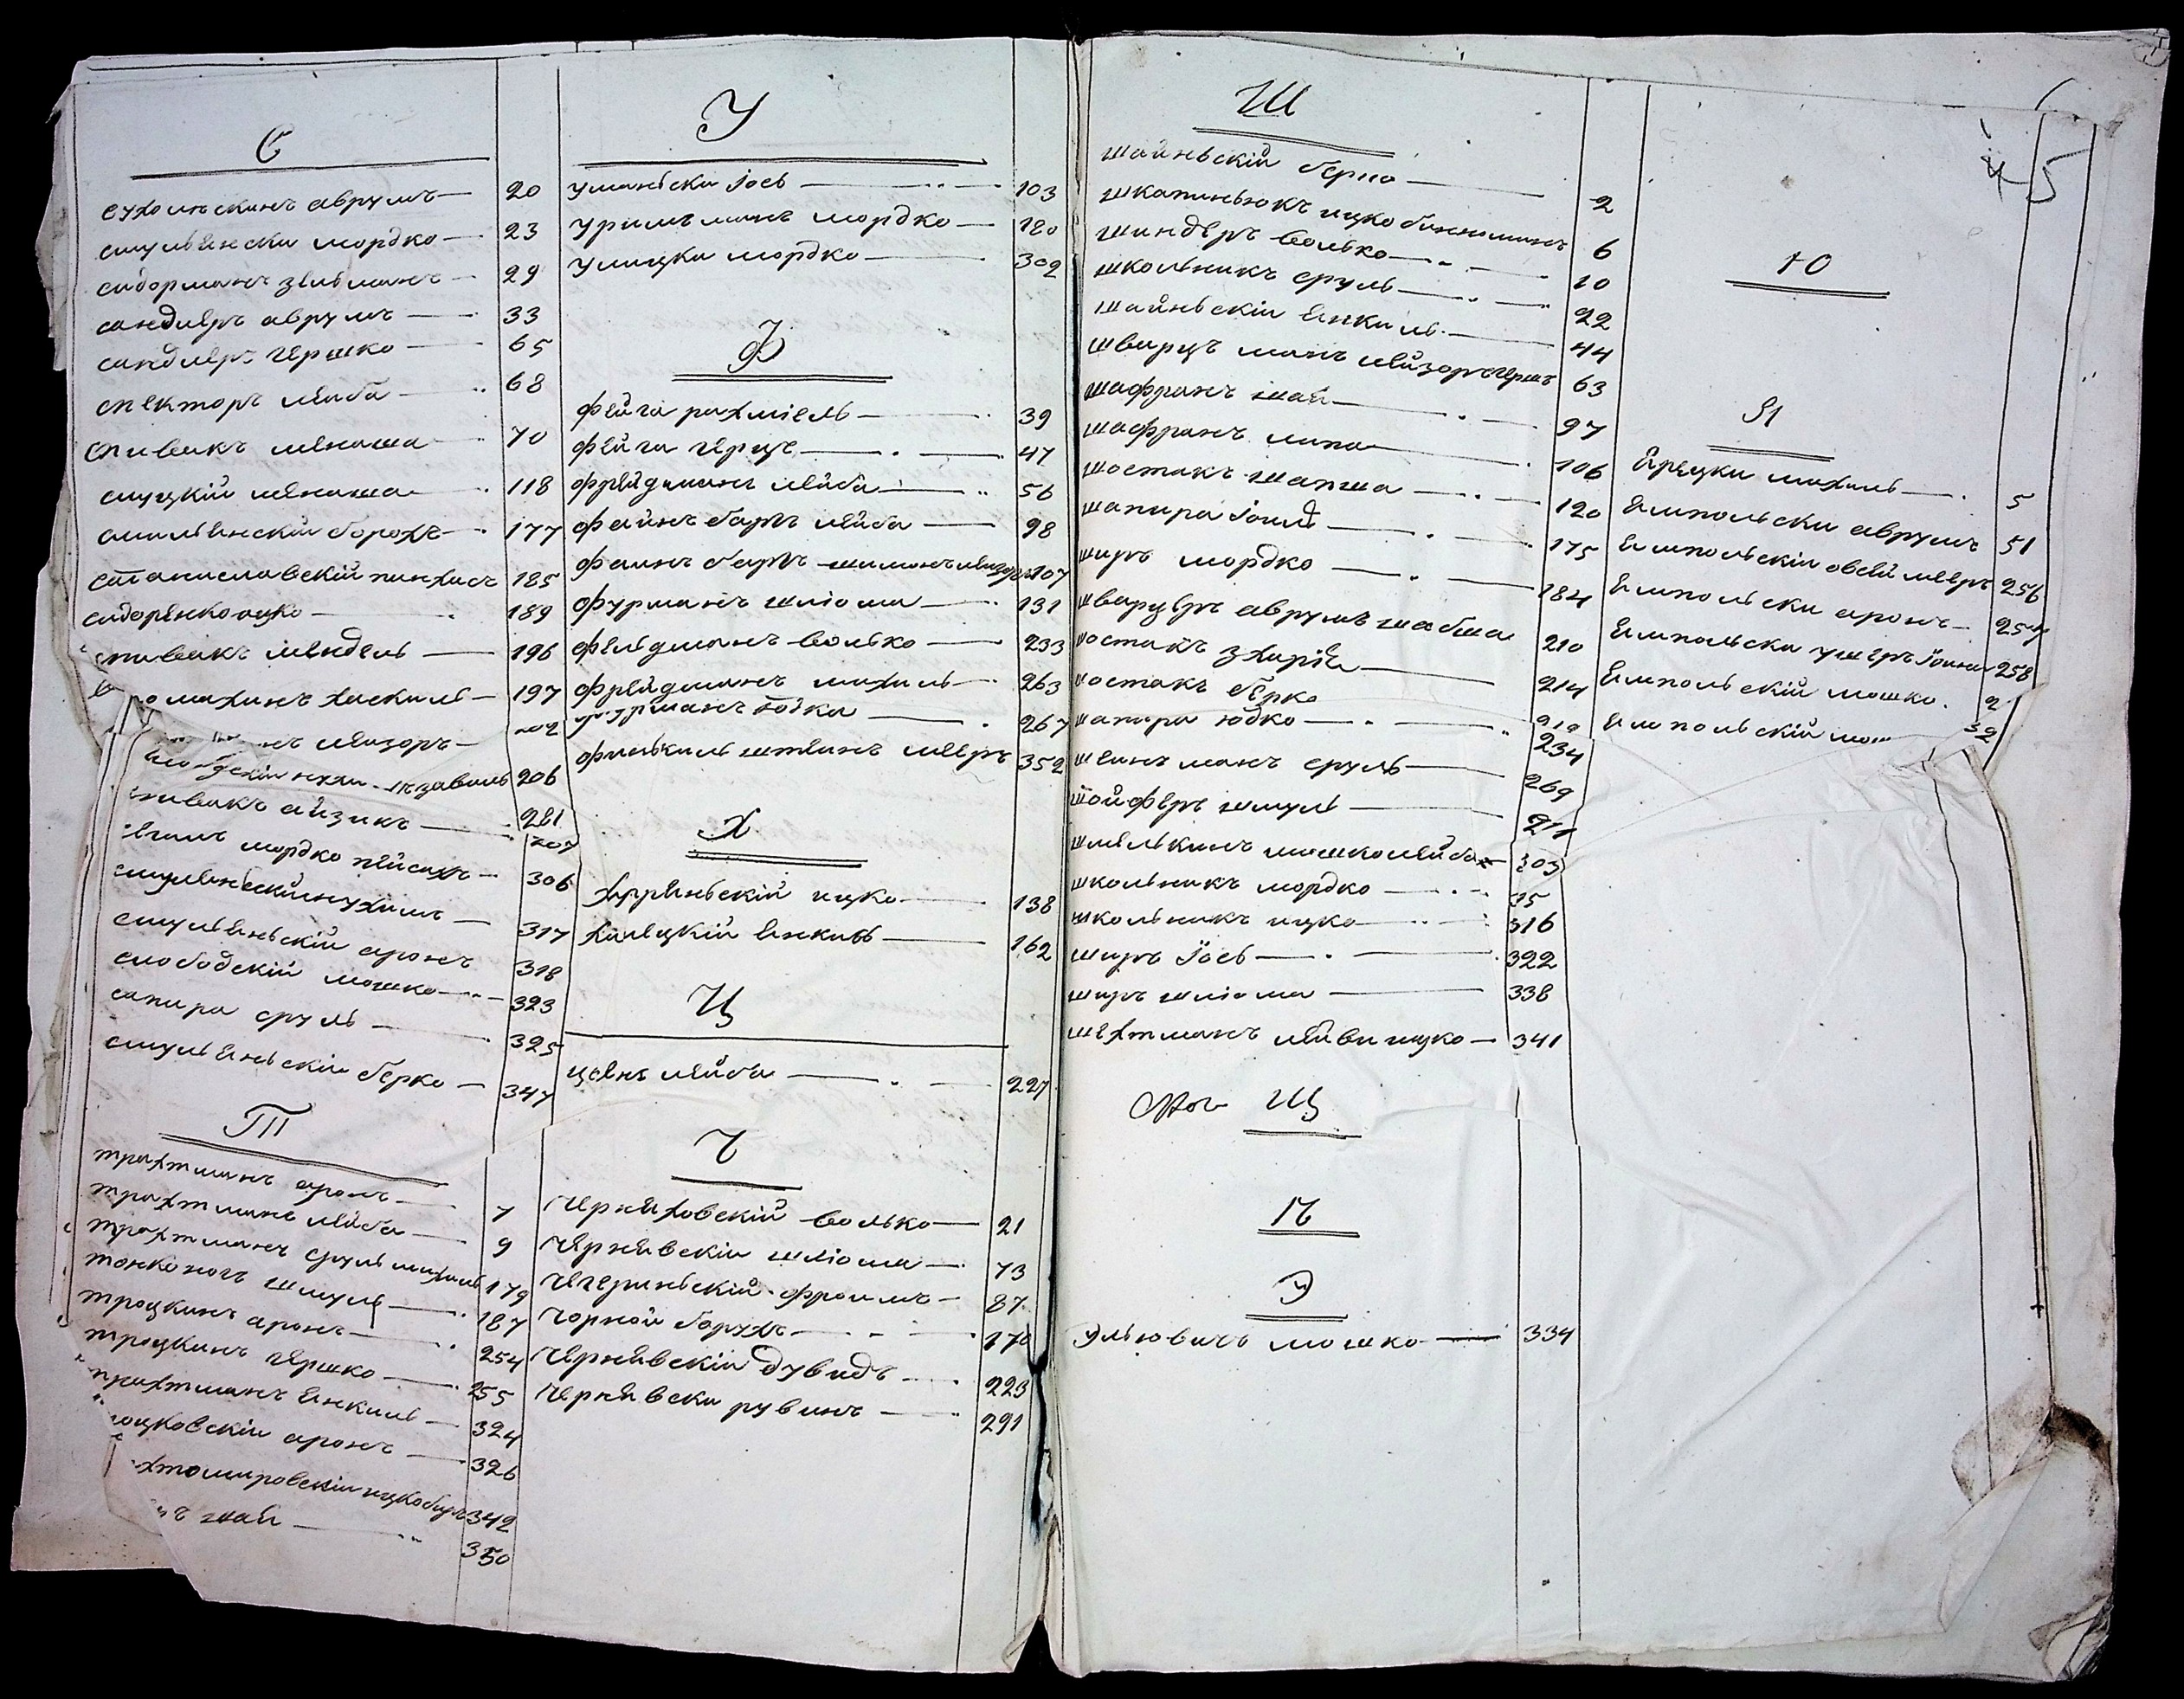 С
Сухомлскинъ аврумъ 20
смульянски мордко 23
сидорманъ зельманъ 29
сандлеръ аврумъ 33
сандлеръ гершко 65
спекторъ лейба 68
спивакъ менаша 70
слуцкій менаша 118
смильянскій борохъ 177
станиславскій пинхасъ 185
сидоренко ицко 189
спивакъ мендель 196
хаскиль 197
лейзоръ 202
206
спивакъ айзикъ 281
мордко пейсахъ 306
смулянскій нухимъ 317
смульянскій аронъ 318
слободскій мошко 323
сапира сруль 325
смульянскій берко 347
Т
трахтманъ аронъ 7
трахтманъ лейба 9
трахтманъ сруль михиль 179
тонконогъ шмуль 187
троцкинъ аронъ 254
троцкинъ гершко 255
трахтманъ янкиль 324
аронъ 326
342
шая 350
У
уманьски Іосъ 103
уримъ манъ мордко 180
улицки мордко 302
Ф
фейга рахміель 39
фейга герце 47
фрейдманъ лейба 56
файнъ барть лейба 98
файнъ барть шиманъ лейзоръ 107
фурманъ шліома 131
фельдманъ волько 233
фрейдманъ михиль 263
фурманъ іойна 267
финкильштеинъ мееръ 352
Х
харленьскій ицко 138
хмлецкій янкиль 162
Ц
цвенъ лейба 227
Ч
черняховскій волько 21
чернявскіи шліома 73
чегериньскій фроимъ 87
чорной борухъ 170
чернявскіи дувидъ 223
чернявски рувинъ 291
Ш
шайньскій берко 2
шкапиньюкъ ицко биньяминъ 6
шиндеръ волько 10
школьникъ сруль 22
шайньскіи янкиль 44
шварцъ манъ лейзоръ герш 63
шафранъ шая 97
шафранъ липа 106
шостакъ шапша 120
шапира Іоинъ 175
ширъ мордко 184
шварцеръ аврумъ шабша 210
шостакъ зхаріе 214
шостакъ берко
шапира юдко 234
шеинъ манъ сруль 269
шойферъ шмуль 277
шмелькинъ мошко лейба 303
школьникъ мордко 315
школьникъ ицко 316
ширъ Іосъ 322
ширъ шліома 338
шехтманъ лейви ицко 341
Щ
Э
Эльковичъ мошко 334
5
Ю
Я
Ярецки михиль 5
Ямпольски аврумъ 51
Ямпольскіи овсей мееръ 256
Ямпольски аронъ 257
Ямпольски ушеръ Іоина 258
Ямпольскій мошко
Ямпольскій